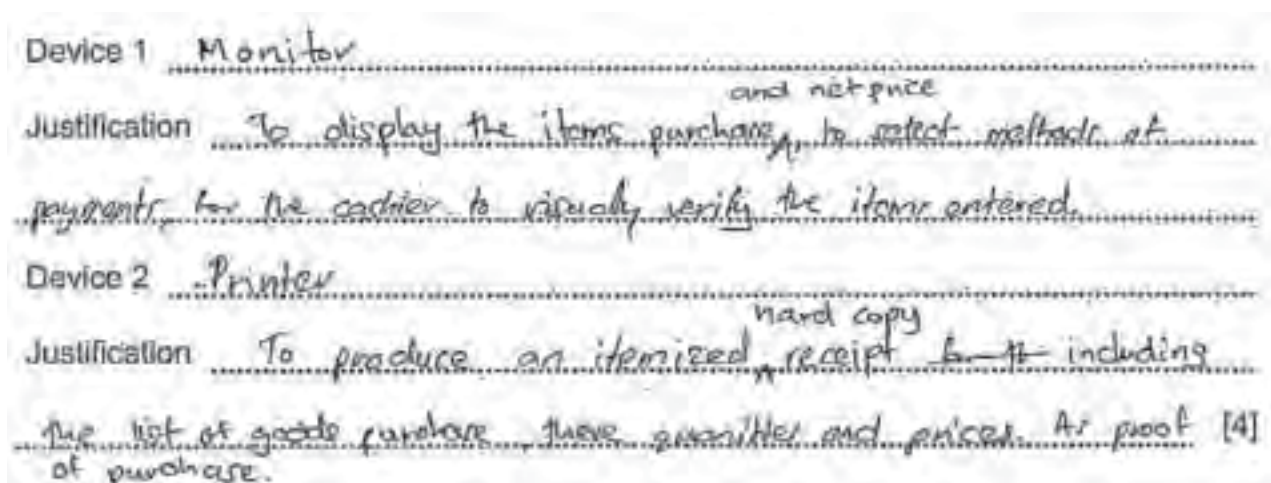 Device 1 Monitor
and net price
Justification To display the items purchase, to select methods of
payments, for the cashier to visually verify the items entered.
Device 2 Printer
hard copy
Justification To produce an itemized receipt including
the list of goods purchase, there quantities and prices. As proof [4]
of purchase.